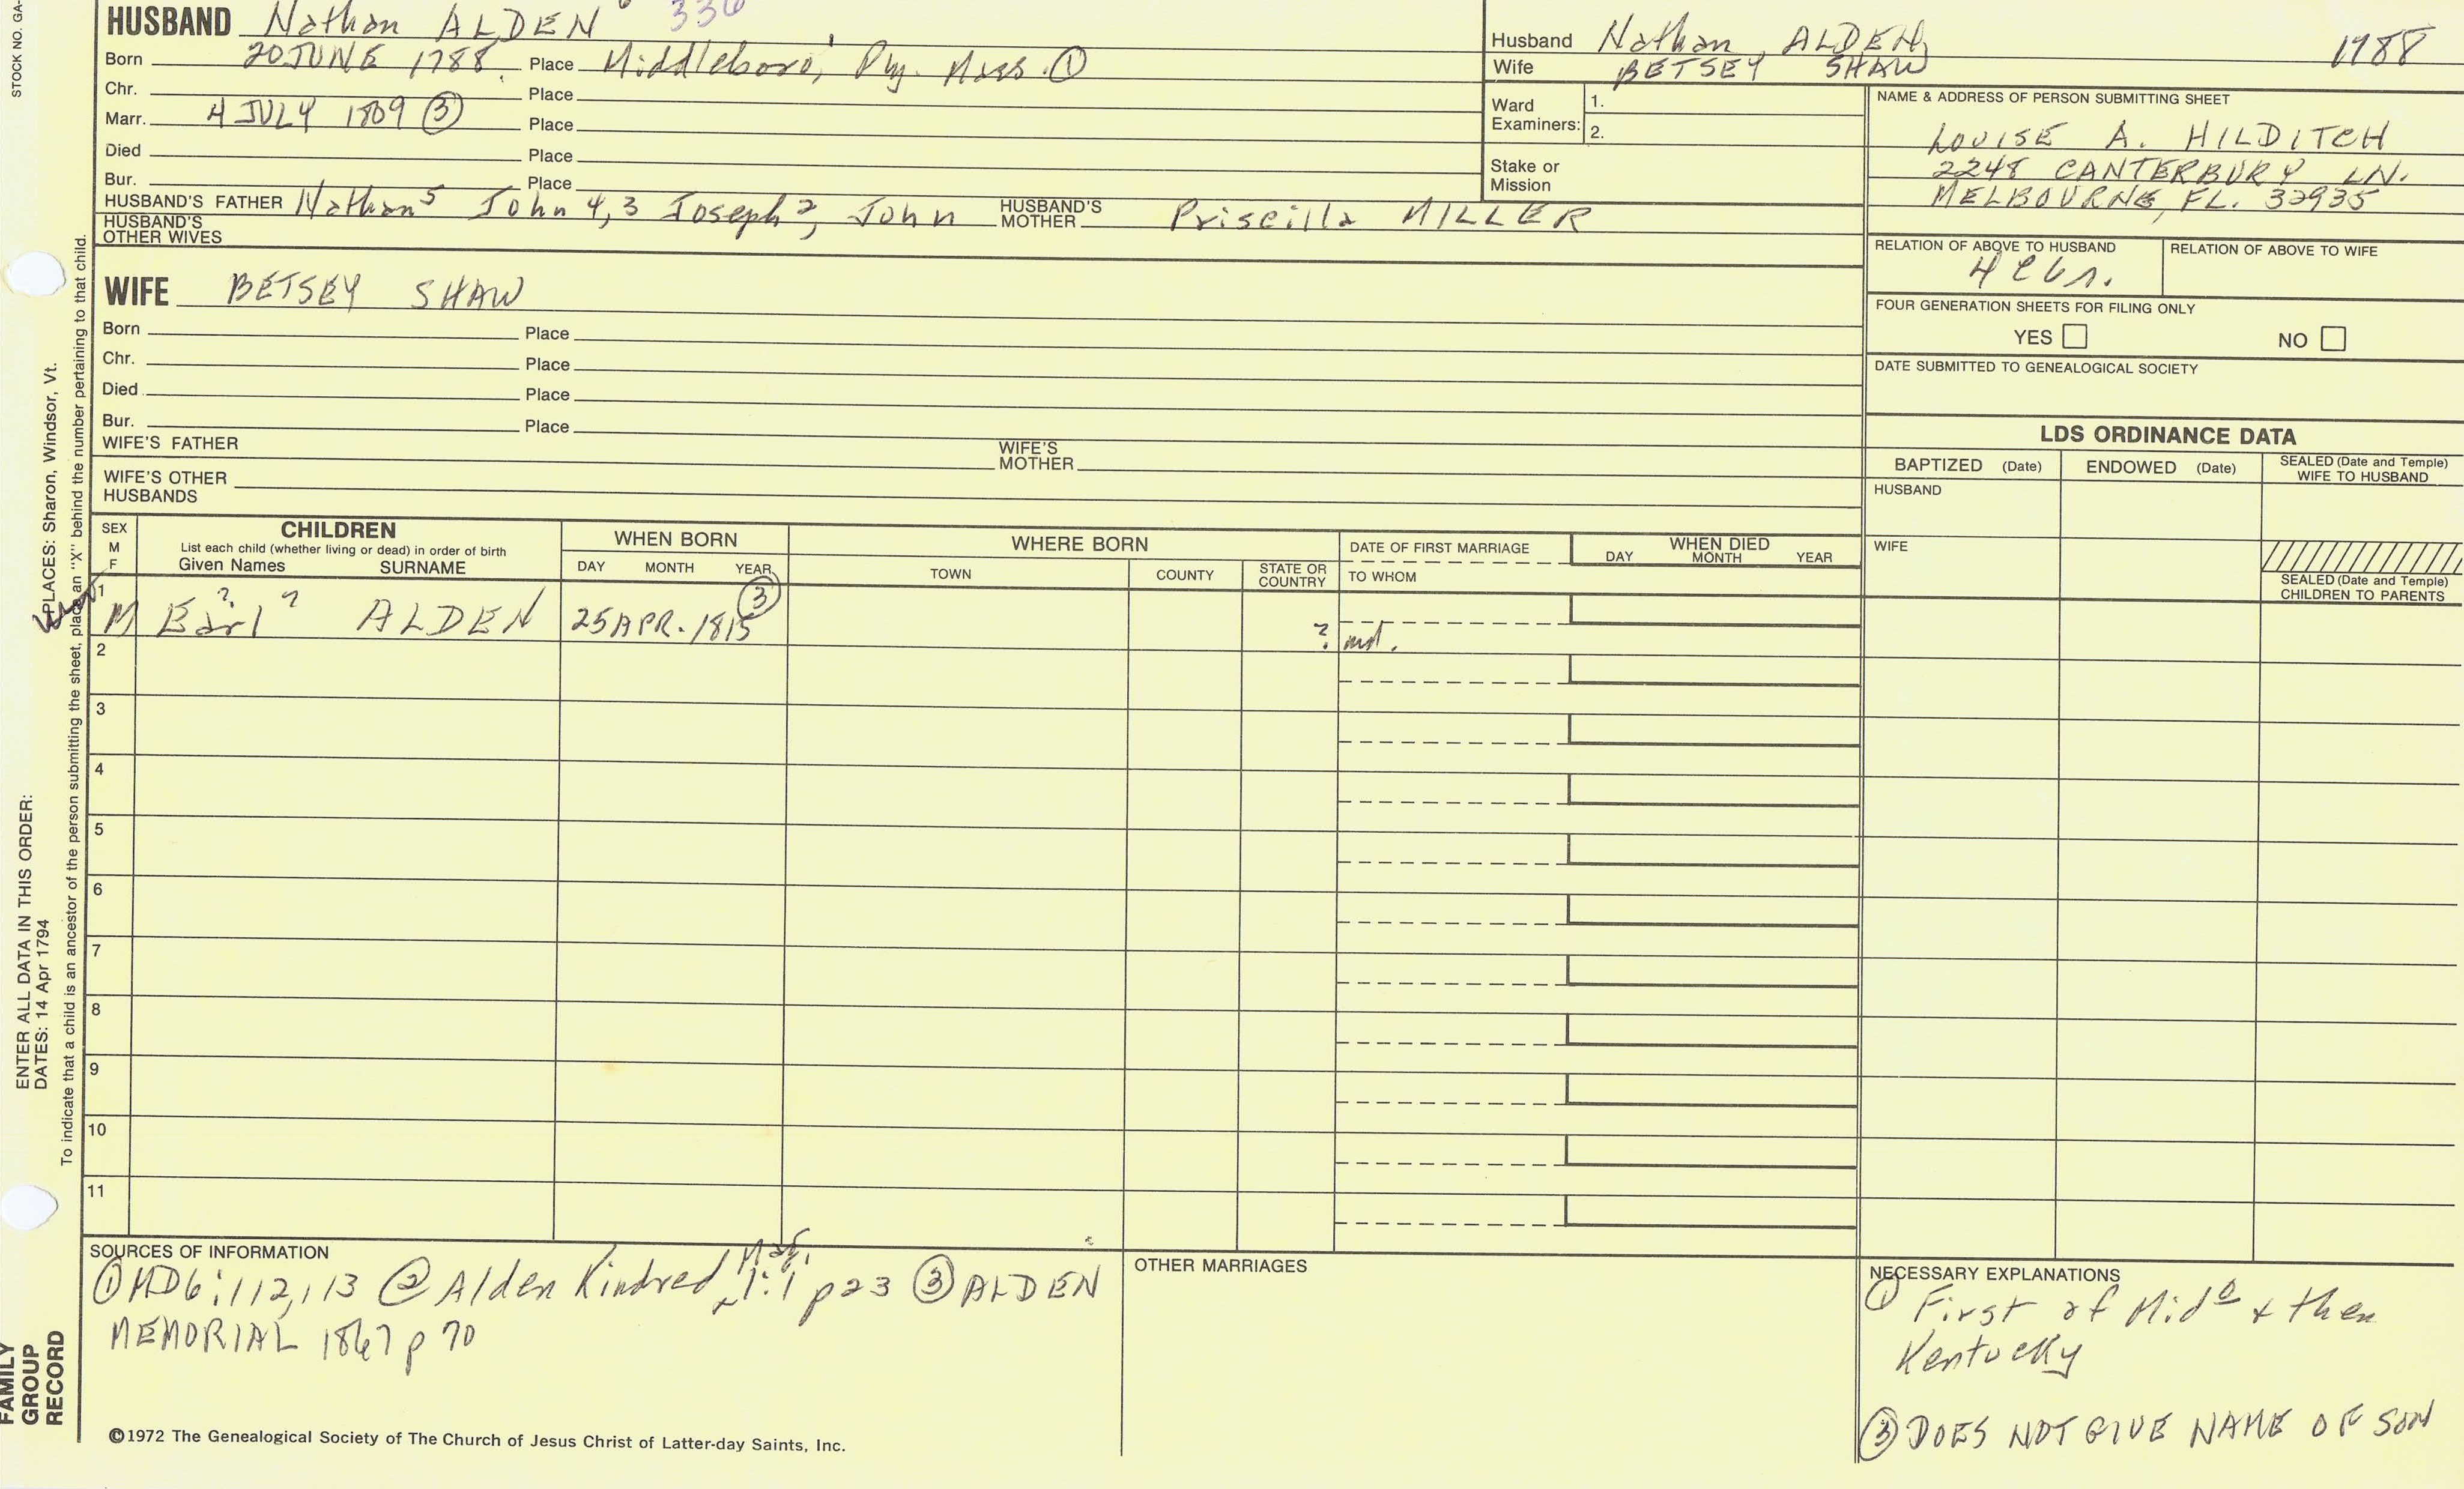 STOCK NO. GA-
HUSBAND Nathan ALDEN 6 336
Born 20 JUNE 1788 Place Middleboro, Ply. Mass. ①
Chr. Place
Marr. 4 JULY 1809 ③ Place
Died Place
Bur. Place
HUSBAND'S FATHER Nathan5 John 4,3 Joseph2, John HUSBAND'S MOTHER Priscilla MILLER
HUSBAND'S OTHER WIVES
WIFE BETSEY SHAW
Born Place
Chr. Place
Died Place
Bur. Place
WIFE'S FATHER WIFE'S MOTHER
WIFE'S OTHER HUSBANDS
Husband Nathan ALDEN 1788
Wife BETSEY SHAW
Ward Examiners: 1.
2.
Stake or Mission
NAME & ADDRESS OF PERSON SUBMITTING SHEET
LOUISE A. HILDITCH
2248 CANTERBURY LN.
MELBOURNE, FL. 32935
RELATION OF ABOVE TO HUSBAND RELATION OF ABOVE TO WIFE
FOUR GENERATION SHEETS FOR FILING ONLY
YES NO
DATE SUBMITTED TO GENEALOGICAL SOCIETY
LDS ORDINANCE DATA
BAPTIZED (Date) ENDOWED (Date) SEALED (Date and Temple) WIFE TO HUSBAND
HUSBAND
WIFE
SEALED (Date and Temple) CHILDREN TO PARENTS
SEX M F
CHILDREN
List each child (whether living or dead) in order of birth
Given Names SURNAME
WHEN BORN
DAY MONTH YEAR
WHERE BORN
TOWN COUNTY STATE OR COUNTRY
DATE OF FIRST MARRIAGE
TO WHOM
WHEN DIED
DAY MONTH YEAR
1 M ? Earl ? ALDEN 25 APR. 1815 ③ ? md.
2
3
4
5
6
7
8
9
10
11
SOURCES OF INFORMATION
① MD6:112,113 ② Alden Kindred Mag. 1:1 p23 ③ ALDEN
MEMORIAL 1867 p 70
OTHER MARRIAGES
NECESSARY EXPLANATIONS
① First of Mido & then
Kentucky
③ DOES NOT GIVE NAME OF SON
©1972 The Genealogical Society of The Church of Jesus Christ of Latter-day Saints, Inc.
ENTER ALL DATA IN THIS ORDER:
DATES: 14 Apr 1794 PLACES: Sharon, Windsor, Vt.
To indicate that a child is an ancestor of the person submitting the sheet, place an "X" behind the number pertaining to that child.
FAMILY
GROUP
RECORD